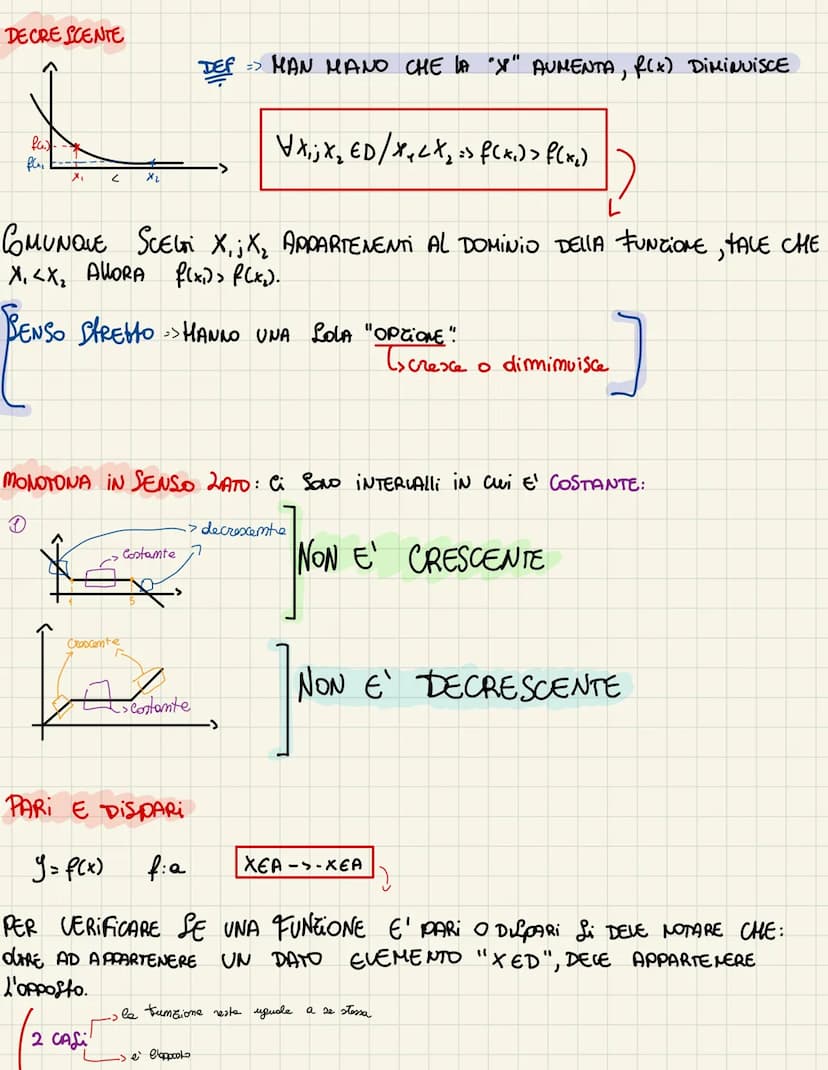 DECRESCENTE
DEF => MAN MANO CHE LA "X" AUMENTA, f(x) DIMINUISCE
f(x₁)
f(x₂)
x₁ < x₂
∀ X₁; X₂ ∈ D / X₁ < X₂ => f(x₁) > f(x₂)
COMUNQUE SCELTI X₁; X₂ APPARTENENTI AL DOMINIO DELLA FUNZIONE, TALE CHE
X₁ < X₂ ALLORA f(x₁) > f(x₂).
SENSO STRETTO => HANNO UNA SOLA "OPZIONE":
↳ cresce o diminuisce
MONOTONA IN SENSO LATO: Ci SONO INTERVALLI IN CUI E' COSTANTE:
①
-> decrescente
-> Costante
NON E' CRESCENTE
Crescente
-> Costante
NON E' DECRESCENTE
PARI E DISPARI
y = f(x) f: a X∈A -> -X∈A
PER VERIFICARE SE UNA FUNZIONE E' PARI O DISPARI Si DEVE NOTARE CHE:
OLTRE AD APPARTENERE UN DATO ELEMENTO "X∈D", DEVE APPARTENERE
L'OPPOSTO.
-> la funzione resta uguale a se stessa
2 CASI
-> e' l'opposto